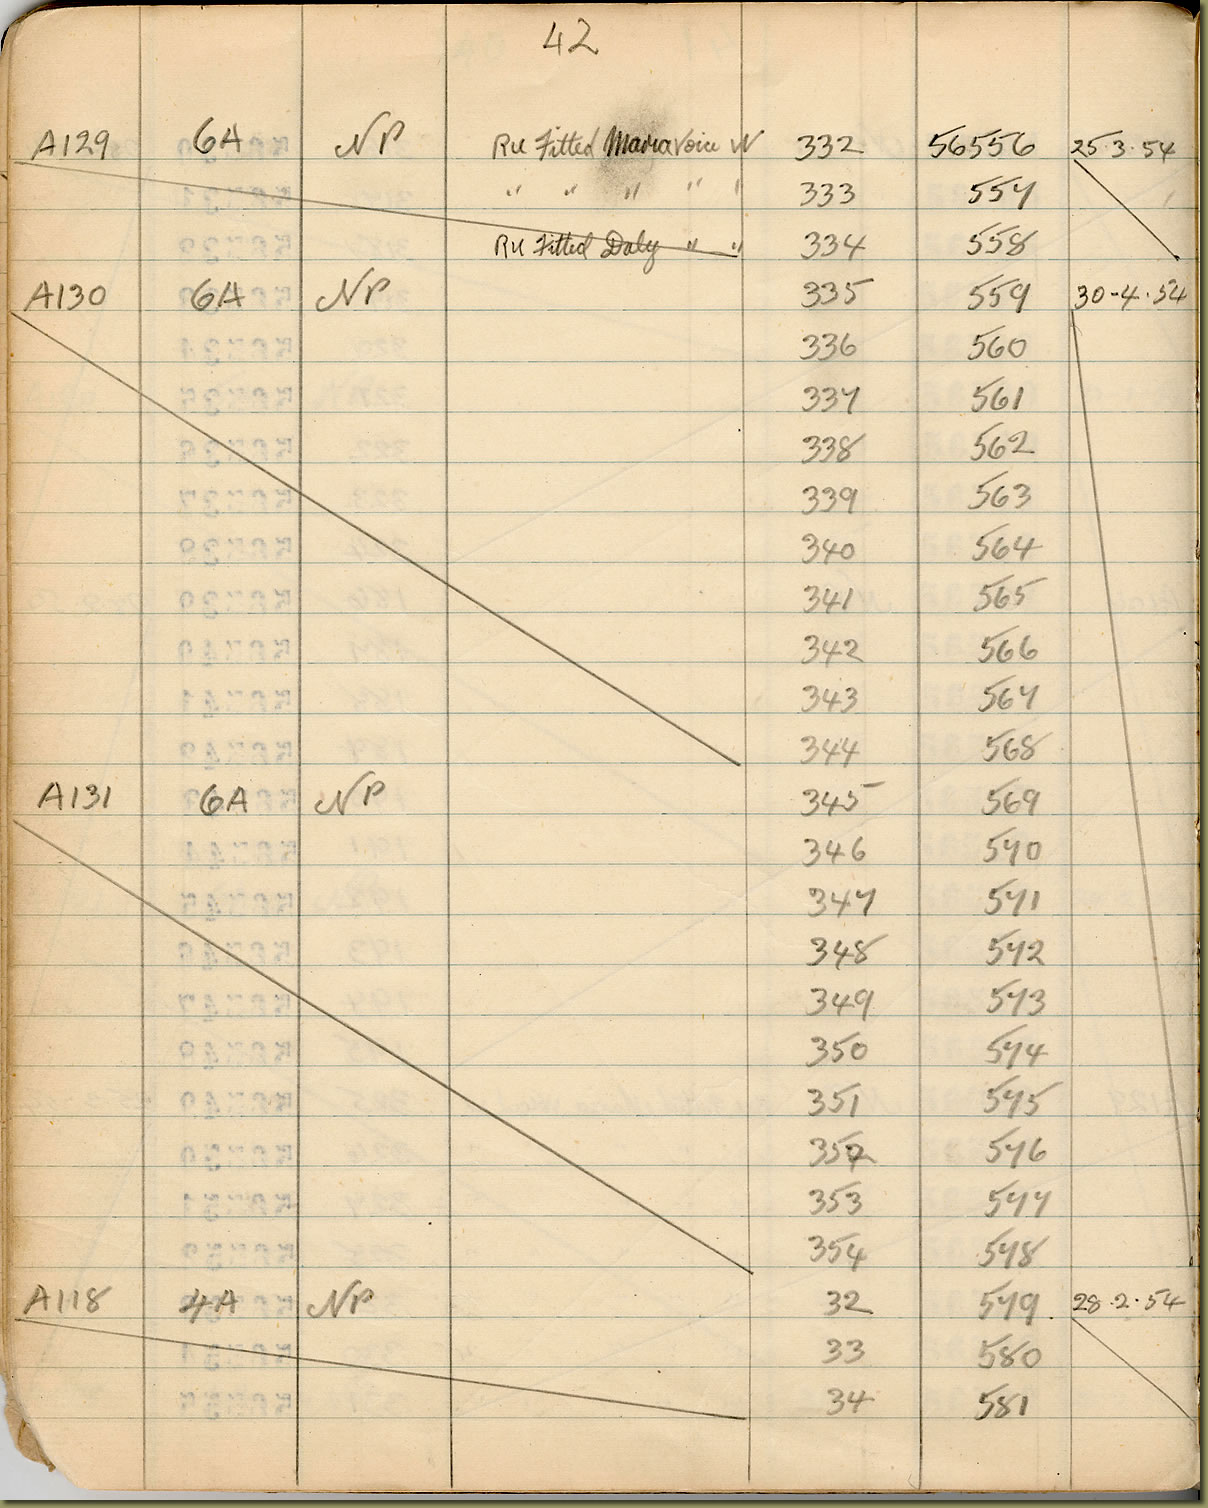 42
A129 6A NP Fitted voice 332 56556 25.3.54
" " " " " 333 557
Fitted Daly " " 334 558
A130 6A NP 335 559 30-4.54
336 560
337 561
338 562
339 563
340 564
341 565
342 566
343 567
344 568
A131 6A NP 345 569
346 570
347 571
348 572
349 573
350 574
351 575
352 576
353 577
354 578
A118 4A NP 32 579 28.2.54
33 580
34 581